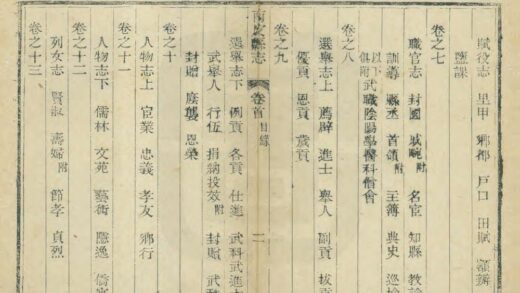 賦役志 里甲 鄉都 戶口 田賦 額辦
鹽課
卷之七
職官志 封國 戚畹附 名宦 知縣 教諭
訓導 縣丞 首領附 主簿 典史 巡檢
以下俱附 武職陰陽學醫科僧會
卷之八
選舉志上 薦辟 進士 舉人 副貢 拔
優貢 恩貢 歲貢
卷之九
縣志 卷首 目錄 二
選舉志下 例貢 各貢 仕進 武科武進
武舉人 行伍 捐納投效附 封贈 武
封贈 廕襲 恩榮
卷之十
人物志上 宦業 忠義 孝友 鄉行
卷之十一
人物志下 儒林 文苑 藝術 隱逸 僑寓
卷之十二
列女志 賢淑 壽婦附 節孝 貞烈
卷之十三